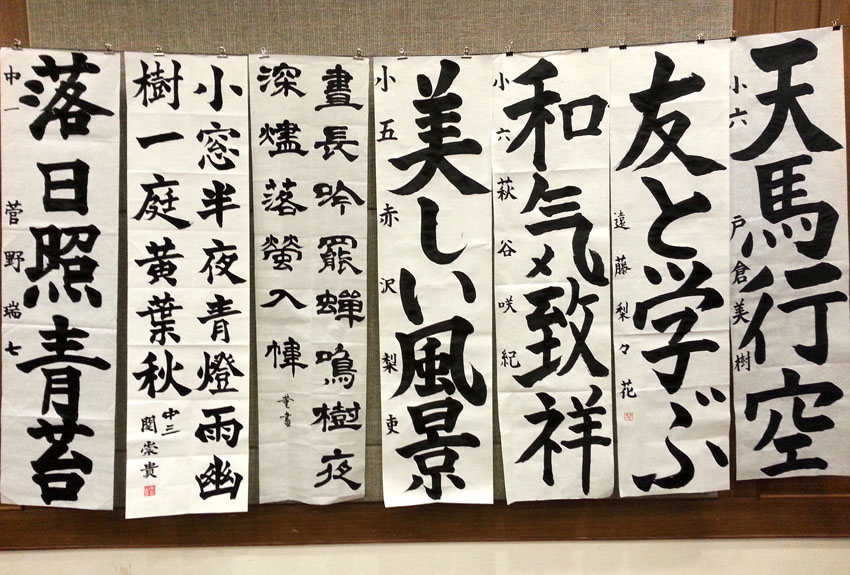 天馬行空
小六 戸倉美樹
友と学ぶ
遠藤梨々花
和気致祥
小六 萩谷咲紀
美しい風景
小五 赤沢梨
晝長吟罷蟬鳴樹夜
深燼落螢入幃
小窓半夜青燈雨幽
樹一庭黄葉秋
中三
関崇貴
落日照青苔
中一 菅野瑞七